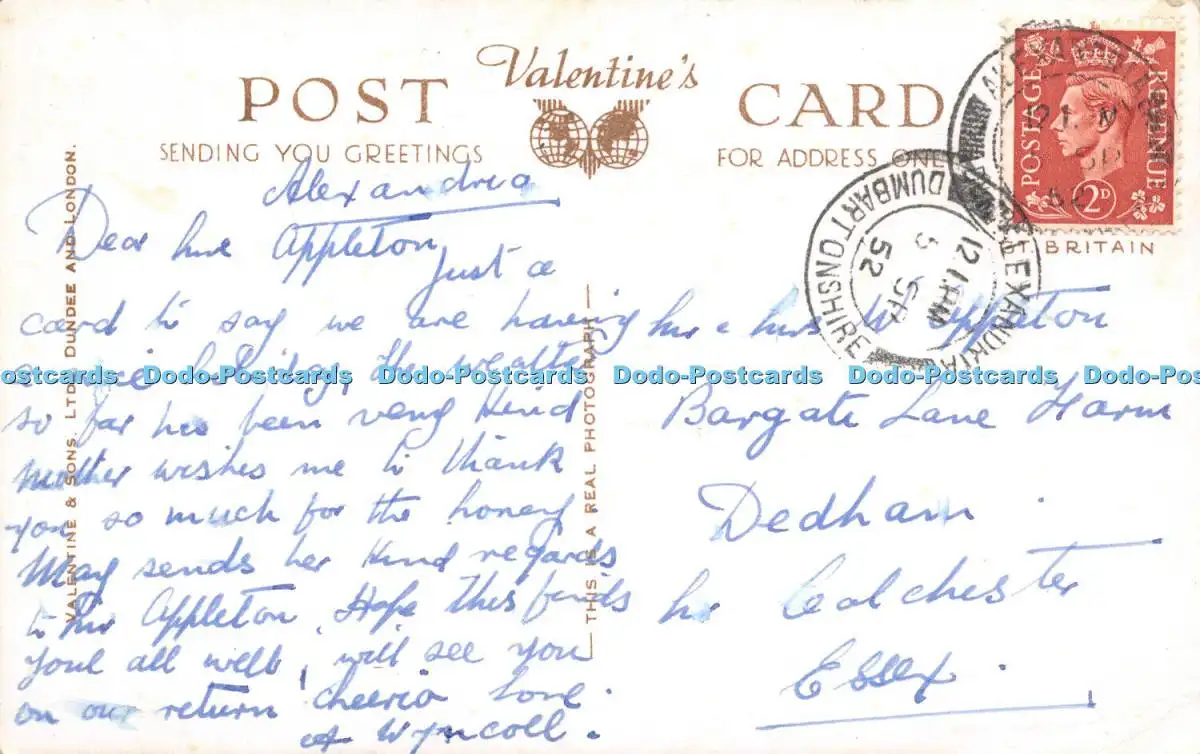 Valentine's
POST CARD
SENDING YOU GREETINGS
FOR ADDRESS ONL
Alexandria
Dear Mrs Appleton
Just a
card to say we are having
a nice holiday, the weather
so far has been very kind
Mother wishes me to thank
you so much for the honey
May sends her kind regards
to Mr Appleton. Hope this finds
you all well, will see you
on our return cheerio love.
Wyncoll.
Mr & Mrs W Appleton
Bargate Lane Farm
Dedham.
Nr Colchester
Essex.
VALENTINE & SONS, LTD. DUNDEE AND LONDON.
THIS IS A REAL PHOTOGRAPH
POSTAGE REVENUE
2D
GT. BRITAIN
ALEXANDRIA
DUMBARTONSHIRE
12 1. PM
SP
52
ostcards Dodo-Postcards Dodo-Postcards Dodo-Postcards Dodo-Postcards Dodo-Pos